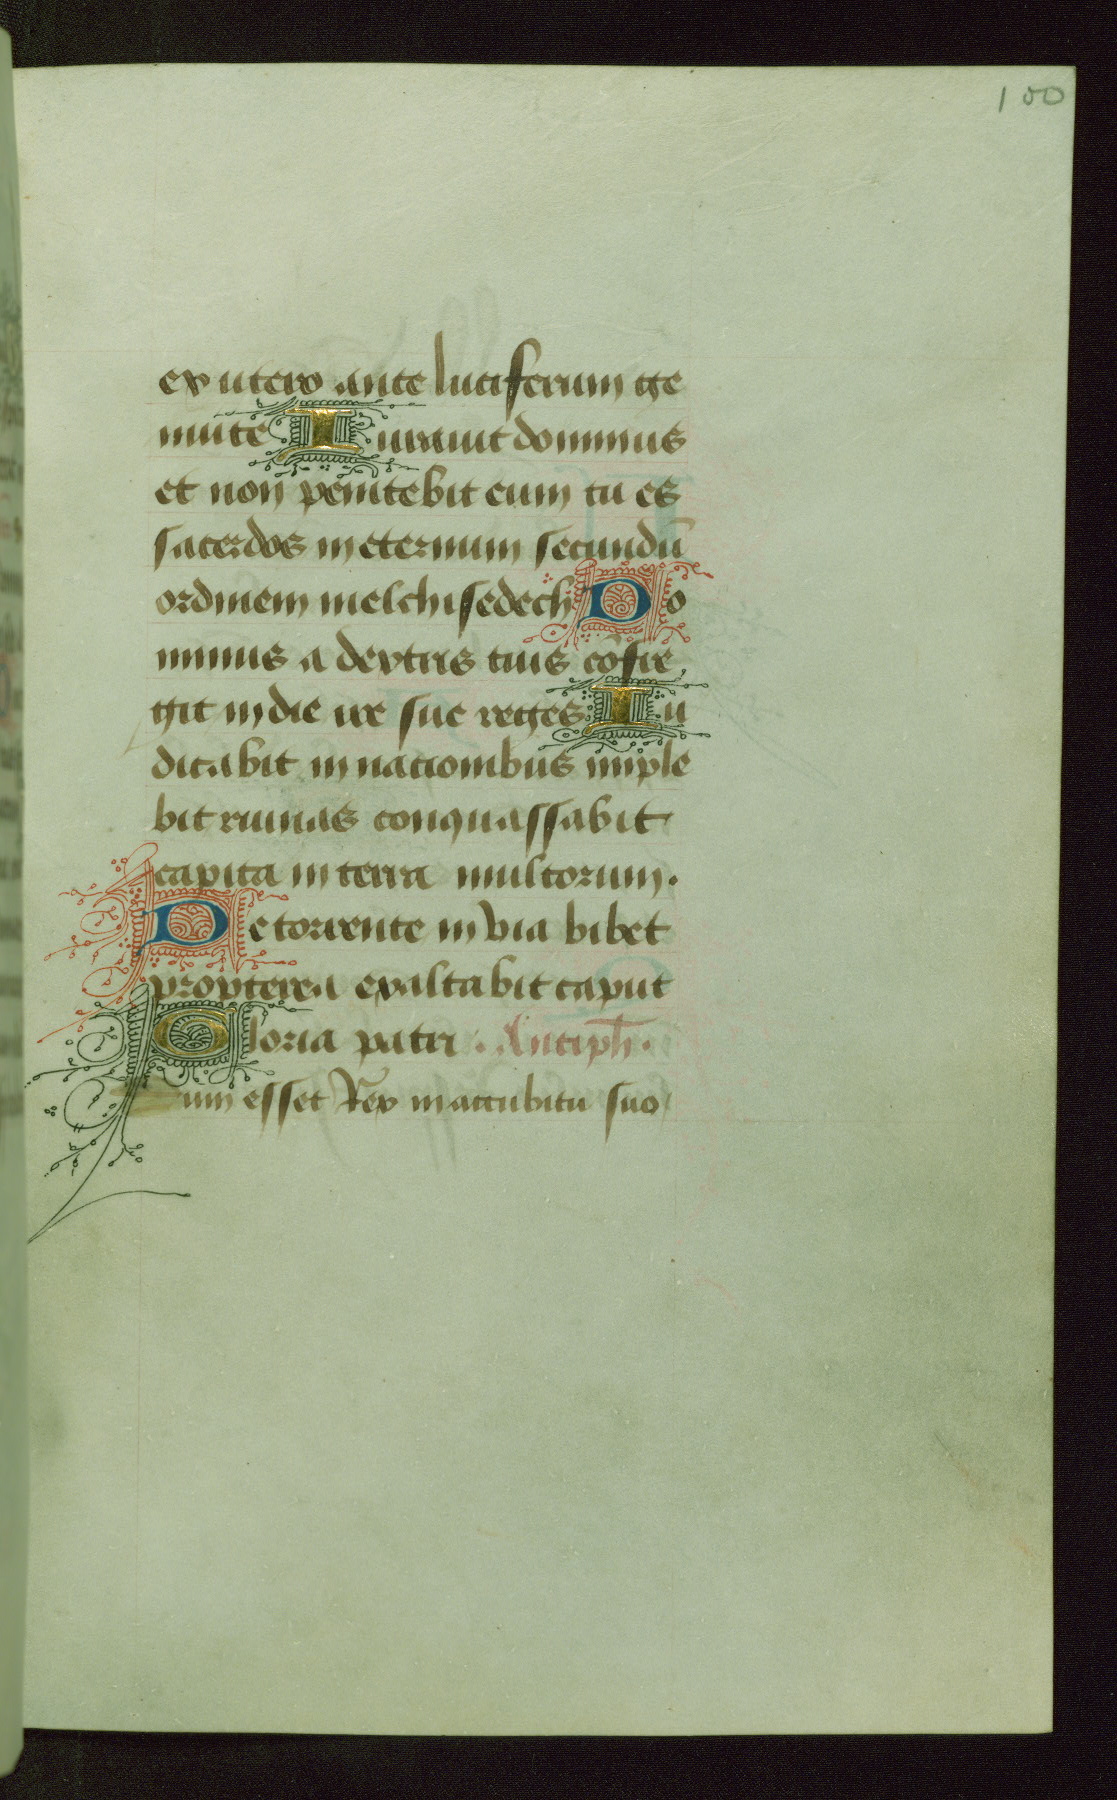 100
ex utero ante luciferum ge
nui te Iuravit dominus
et non penitebit eum tu es
sacerdos in eternum secundū
ordinem melchisedech Do
minus a dextris tuis cōfre
git in die ire sue reges Iu
dicabit in nacionibus imple
bit ruinas conquassabit
capita in terra multorum.
De torrente in via bibet
propterea exaltabit caput
Gloria patri. Antiph.
um esset Rex in accubitu suo